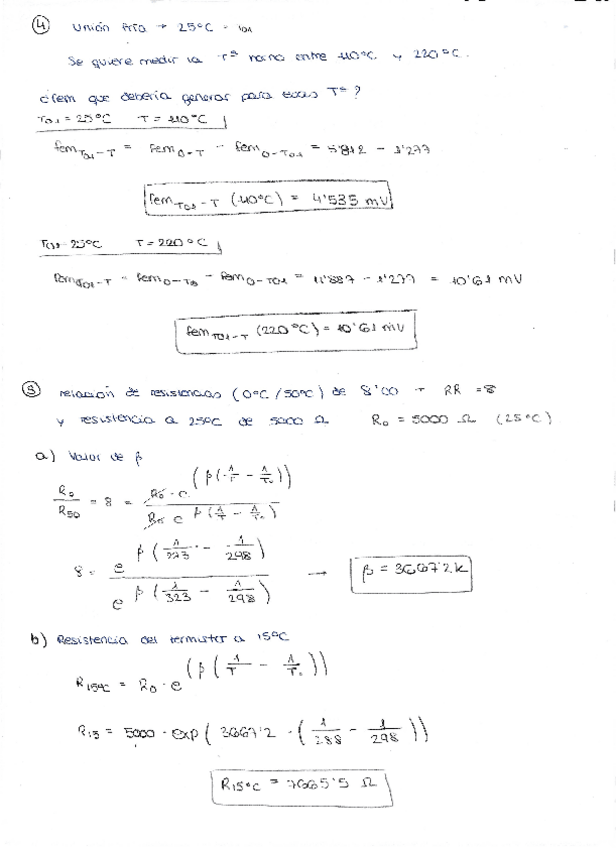 ④ Unión fría → 25ºC = T01
Se quiere medir la Tª horno entre 110ºC y 220ºC.
¿fem que debería generar para esas Tª?
T01 = 25ºC T = 110ºC
fem T01-T = fem 0-T - fem 0-T01 = 5'812 - 1'277
fem T01-T (110ºC) = 4'535 mV
T01 = 25ºC T = 220ºC
fem T01-T = fem 0-T - fem 0-T01 = 11'887 - 1'277 = 10'61 mV
fem T01-T (220ºC) = 10'61 mV
⑤ relación de resistencias (0ºC / 50ºC) de 8'00 → RR = 8
y resistencia a 25ºC de 5000 Ω R0 = 5000 Ω (25ºC)
a) Valor de β
R0 / R50 = 8 = R0 · e^(β(1/T - 1/T0)) / R0 e^β(1/T - 1/T0)
8 = e^β(1/273 - 1/298) / e^β(1/323 - 1/298) → β = 3667'2 K
b) Resistencia del termistor a 15ºC
R15ºC = R0 · e^(β(1/T - 1/T0))
R15 = 5000 · exp(3667'2 · (1/288 - 1/298))
R15ºC = 7665'5 Ω